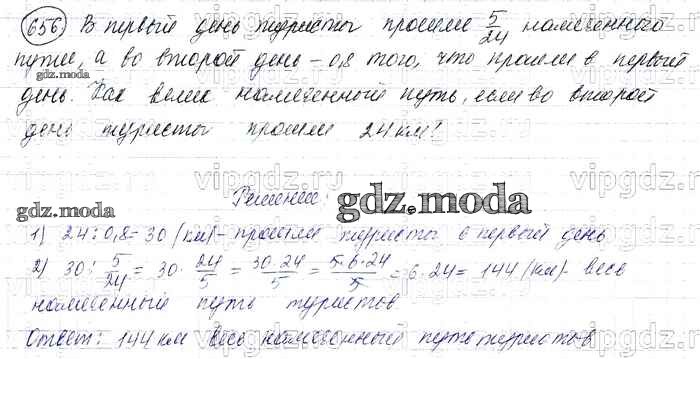 656) В первый день туристы прошли 5/24 намеченного
пути, а во второй день – 0,8 того, что прошли в первый
gdz.moda
день. Как велик намеченный путь, если во второй
день туристы прошли 24 км?
vipgdz.moda
Решение:
gdz.moda
gdz.moda
1) 24 : 0,8 = 30 (км) – прошли туристы в первый день
2) 30 : 5/24 = 30 · 24/5 = 30·24/5 = 5·6·24/5 = 6·24 = 144 (км) – весь
намеченный путь туристов
Ответ: 144 км весь намеченный путь туристов